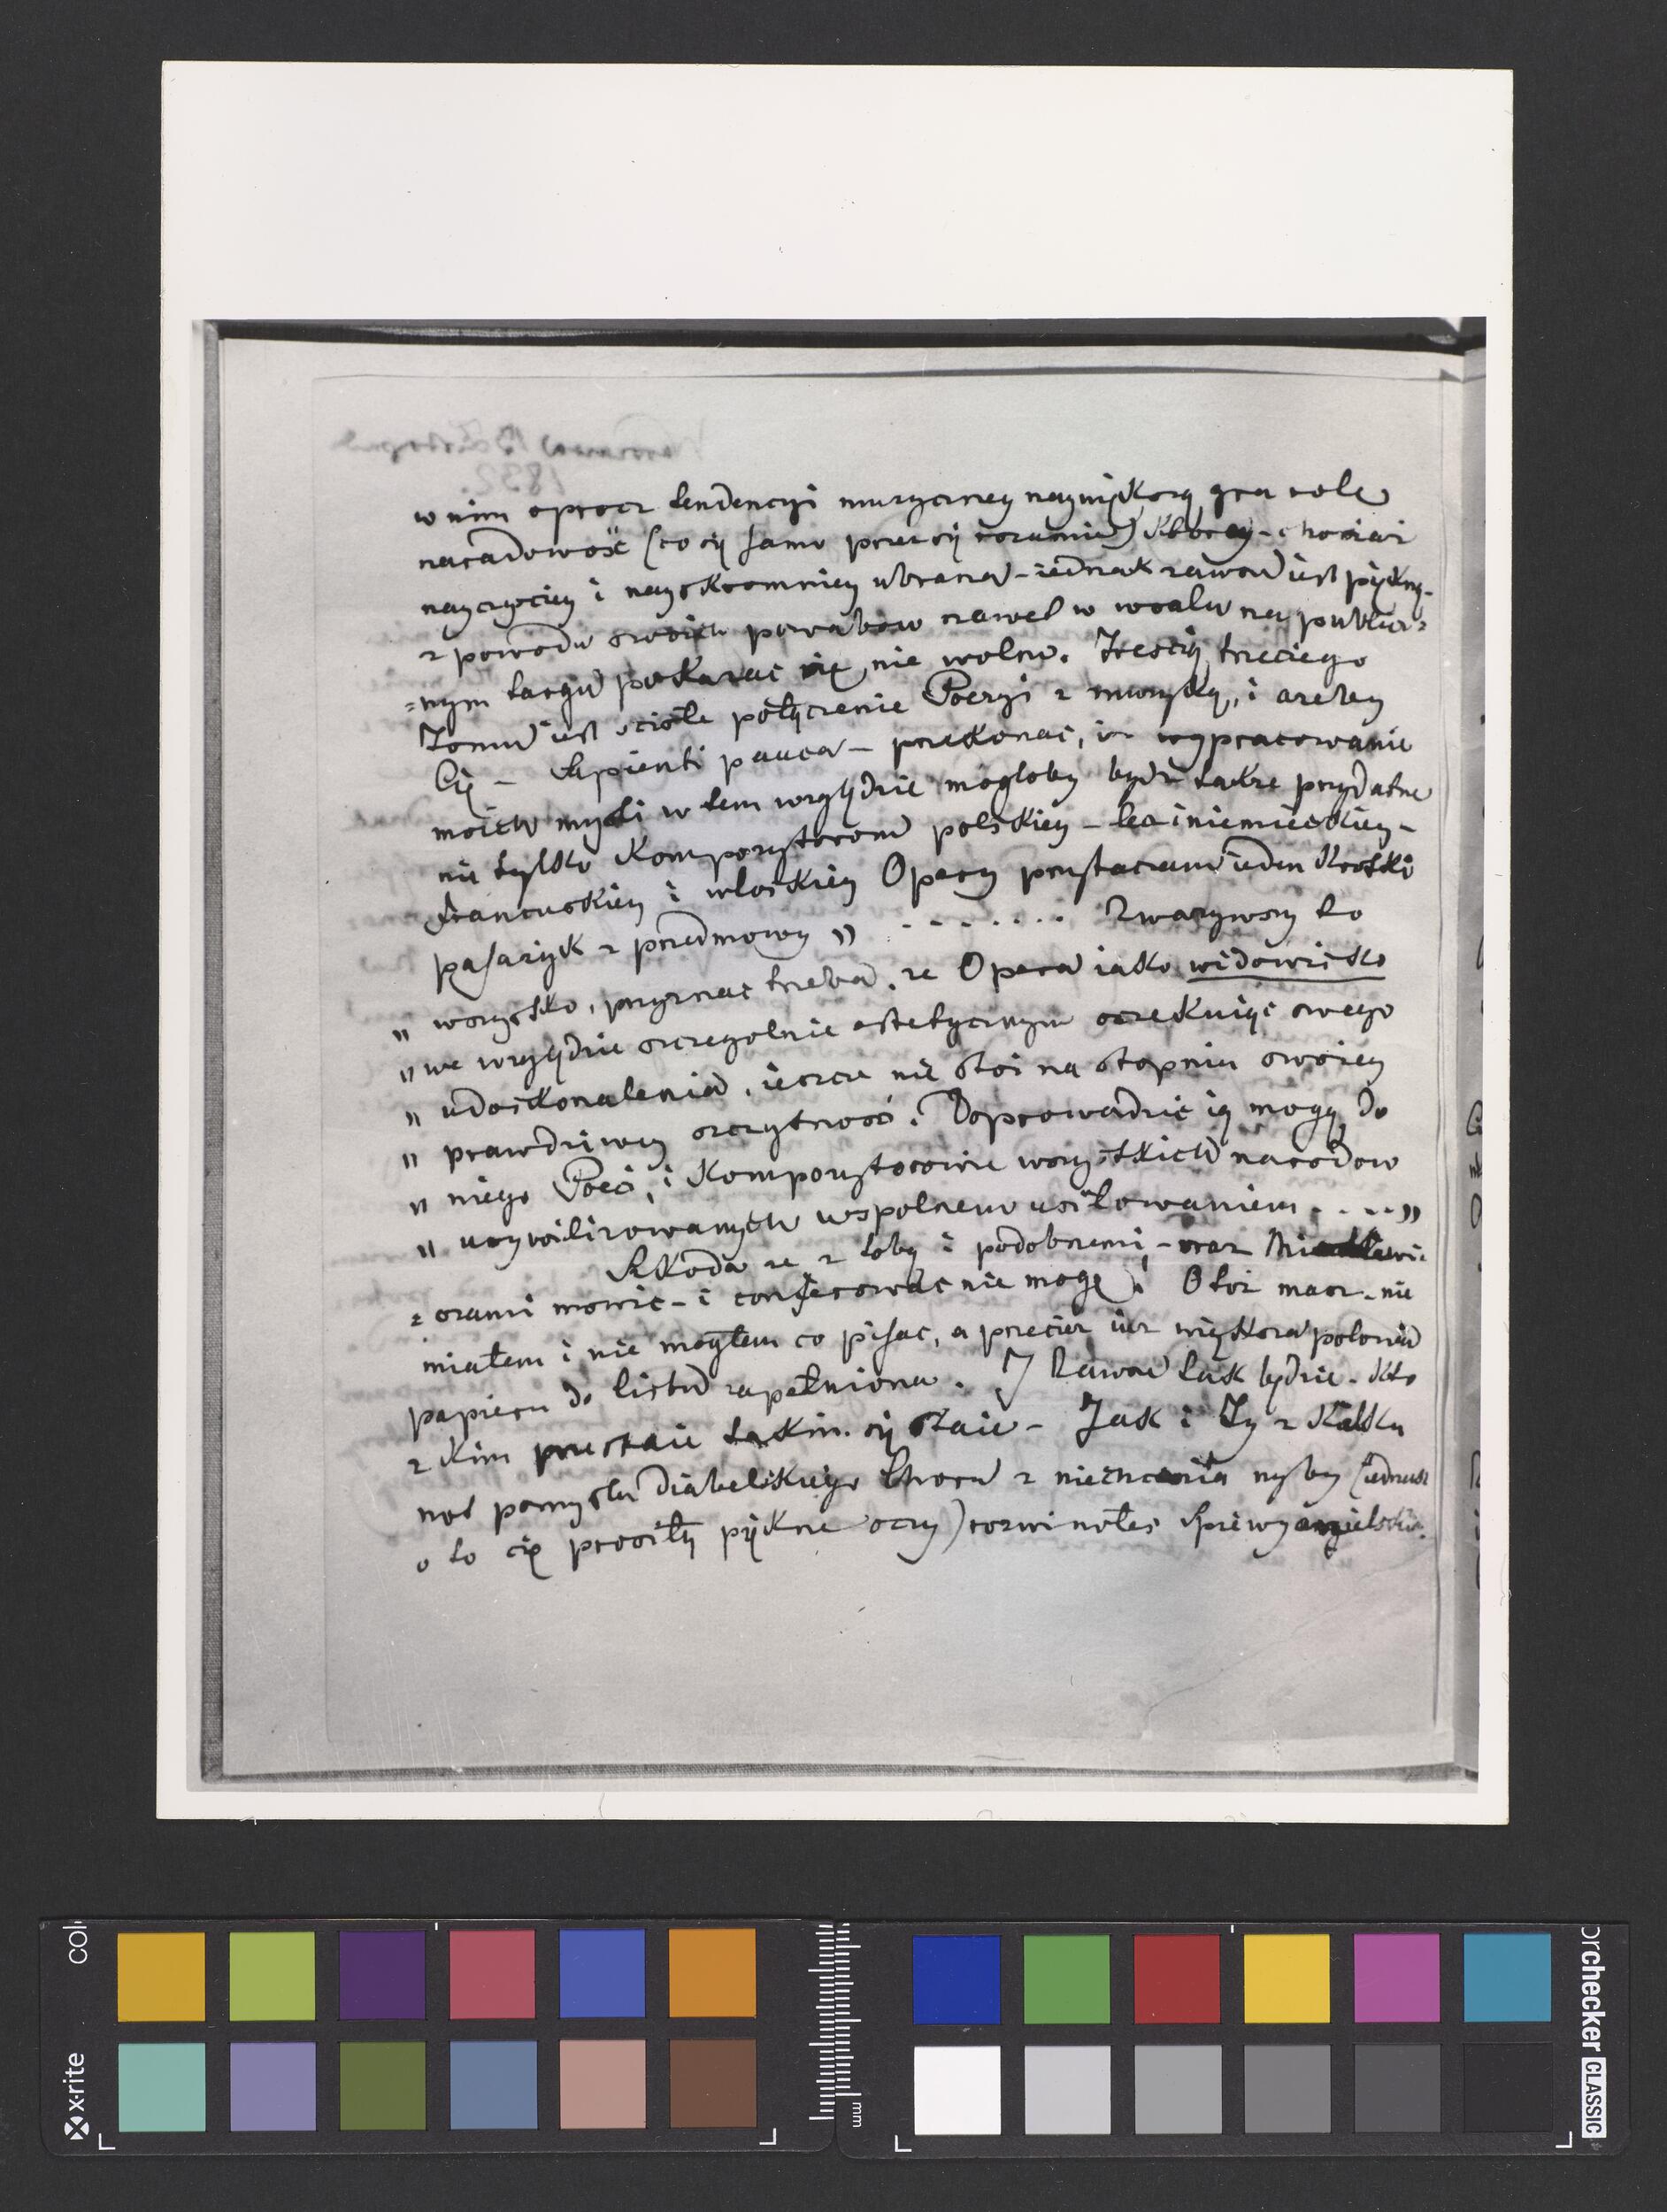 w nim oprocz tendencyi muzyczney naywiększą gra rolę
narodowość (co się samo przez się rozumie) którey - chociaż
nayczyściey i nayskromniey ubrana - iednak zawsze iest piękny -
z powodu swoich powabow nawet w woalu na publicz=
=nym targu pokazać się nie wolno. Treścią trzeciego
Tomu iest ścisłe połączenie Poezyi z muzyką, i ażeby
Cię - Sapienti pauca - przekonać, iż wypracowanie
moich myśli w tem względzie mogłoby bydź także przydatne
nie tylko Kompozytorom polskiey - lecz i niemieckiey -
francuskiey i włoskiey Opery przytaczam ieden krotki
pasażyk z przedmowy „ . . . . . . . Zważywszy to
„ wszystko, przyznać trzeba, że Opera iako widowisko
„ we względzie szczegolnie estetycznym oczekuiąc swego
„ udoskonalenia, ieszcze nie stoi na stopniu swoiey
„ prawdziwey szczytności. Doprowadzić ią mogą do
„ niego Poeci, i Kompozytorowie wszystkich narodow
„ ucywilizowanych wspolnem usiłowaniem . . . . „
Szkoda że z tobą i podobnemi, - oraz Mickiewi=
=czami mowić - i conferować nie mogę. Otoż masz - nie
miałem i nie mogłem co pisać, a przecież iuż większa połowa
papieru do listu zapełniona. I Zawsze tak będzie - kto
z kim przestaie takim się staie - Jak i Ty z kilku
not pomysłu diabelskiego Choru z niechcenia nyby (iednak
o to cię prosiły piękne oczy) rozwinołeś śpiewy angielskie.
1832.
x-rite
colo
mm
orchecker CLASSIC